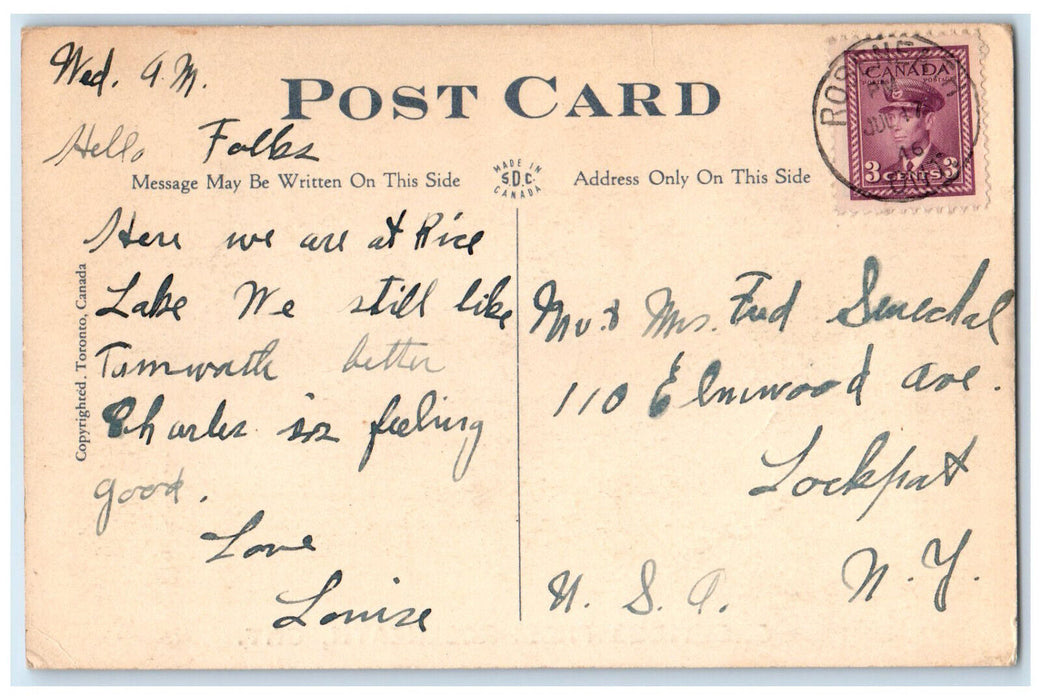 Wed. A.M.
POST CARD
Hello Folks
Message May Be Written On This Side
MADE IN
S.D.C.
CANADA
Address Only On This Side
CANADA
POSTES POSTAGE
3 CENTS 3
PM
JUL 17
46
ONT
Here we are at Rice
Lake We still like
Tamworth better
Charles is feeling
good.
Love
Louise
Copyrighted, Toronto, Canada
Mr & Mrs. Fred Senechal
110 Elmwood Ave.
Lockport
N.Y.
U. S. A.